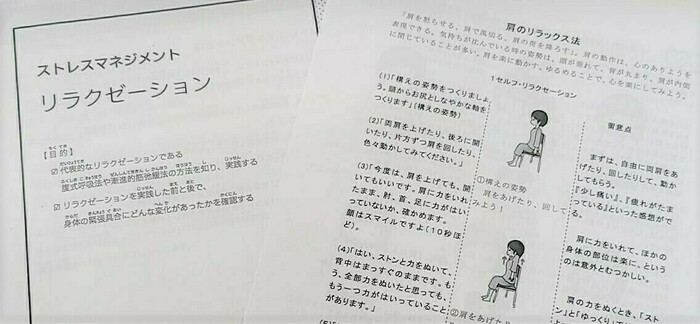 ストレスマネジメント
リラクゼーション
【目的】
☑ 代表的なリラクゼーションである
腹式呼吸法や漸進的筋弛緩法の方法を知り、実践する
☑ リラクゼーションを実践した前と後で、
身体の緊張具合にどんな変化があったかを確認する
肩のリラックス法
「肩を怒らせる、肩で風切る、肩の荷を降ろす」。肩の動作は、心のありようを
表現できる。気持ちが沈んでいる時の姿勢は、頭が垂れて、背が丸まり、肩が内側
に閉じていることが多い。肩を楽に動かす、ゆるめることで、心を楽にしてみよう。
1セルフ・リラクセーション
(1)「構えの姿勢をつくりましょ
う。頭からお尻としなやかな軸を
つくります」(構えの姿勢)
(2)「両肩を上げたり、後ろに開
いたり、片方ずつ肩を回したり、
色々動かしてみてください。」
(3)「今度は、肩を上げても、開
いてもいいです。肩に力をいれ
たまま、肘、首、足に力がはい
っていないか、確かめます。
顔はスマイルですよ(10秒ほ
ど)。
(4)「はい、ストンと力をぬいて、
背中はまっすぐのままです。も
う、全部力をぬいたと思っても、
もう一つ力がはいっていること
があります。」
①構えの姿勢
肩をあげたり、回して
みよう!
②肩をあげた
留意点
まずは、自由に両肩をあ
げたり、回したりして、動か
してもらう。
『少し痛い』、『疲れがたま
っている』といった感想がで
る。
肩に力をいれて、ほかの
身体の部位は楽に、という
のは意外とむつかしい。
肩の力をぬくとき、「スト
ン」と「ゆっくり」